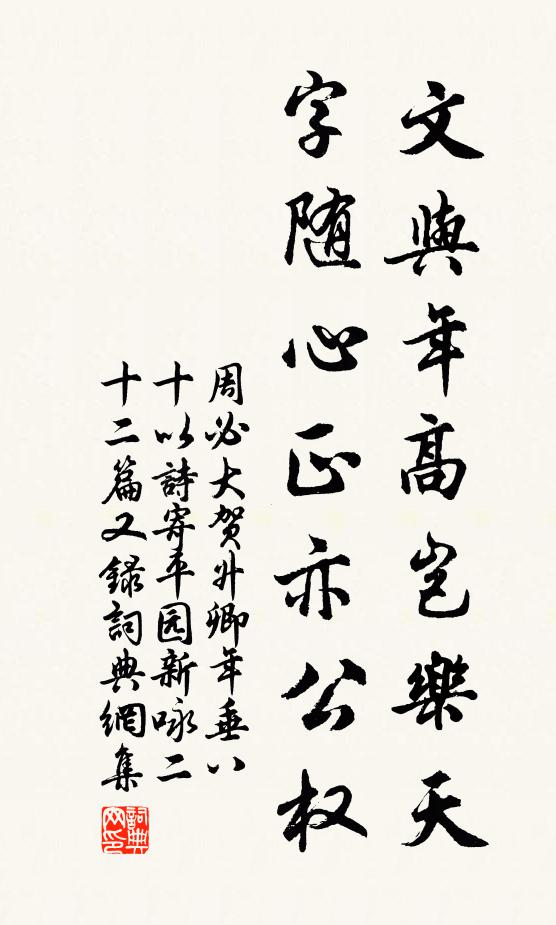 文與年高豈樂天
字随心正亦公权
周必大贺升卿年垂八
十以詩寄平园新咏二
十二篇又録詞典網集
詞典
网印